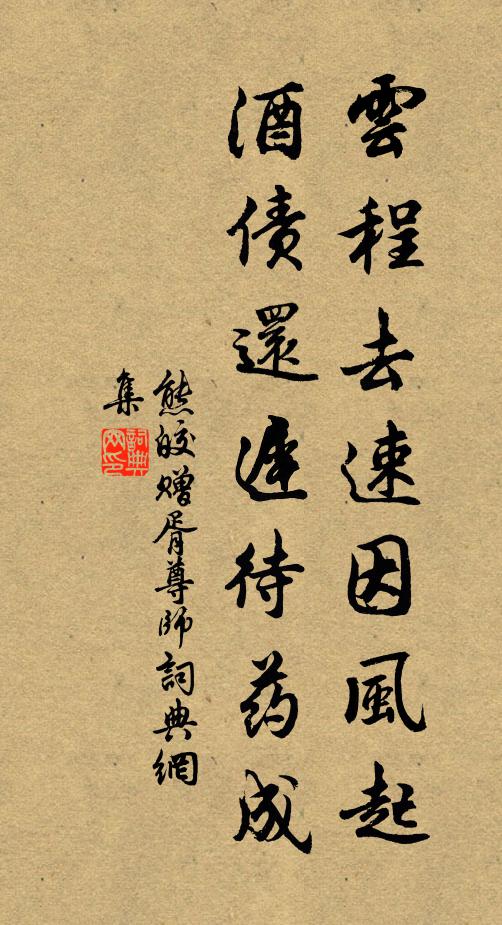 雲程去速因風起
酒债還遲待药成
熊皎赠胥尊師詞典網
集
詞典
网印